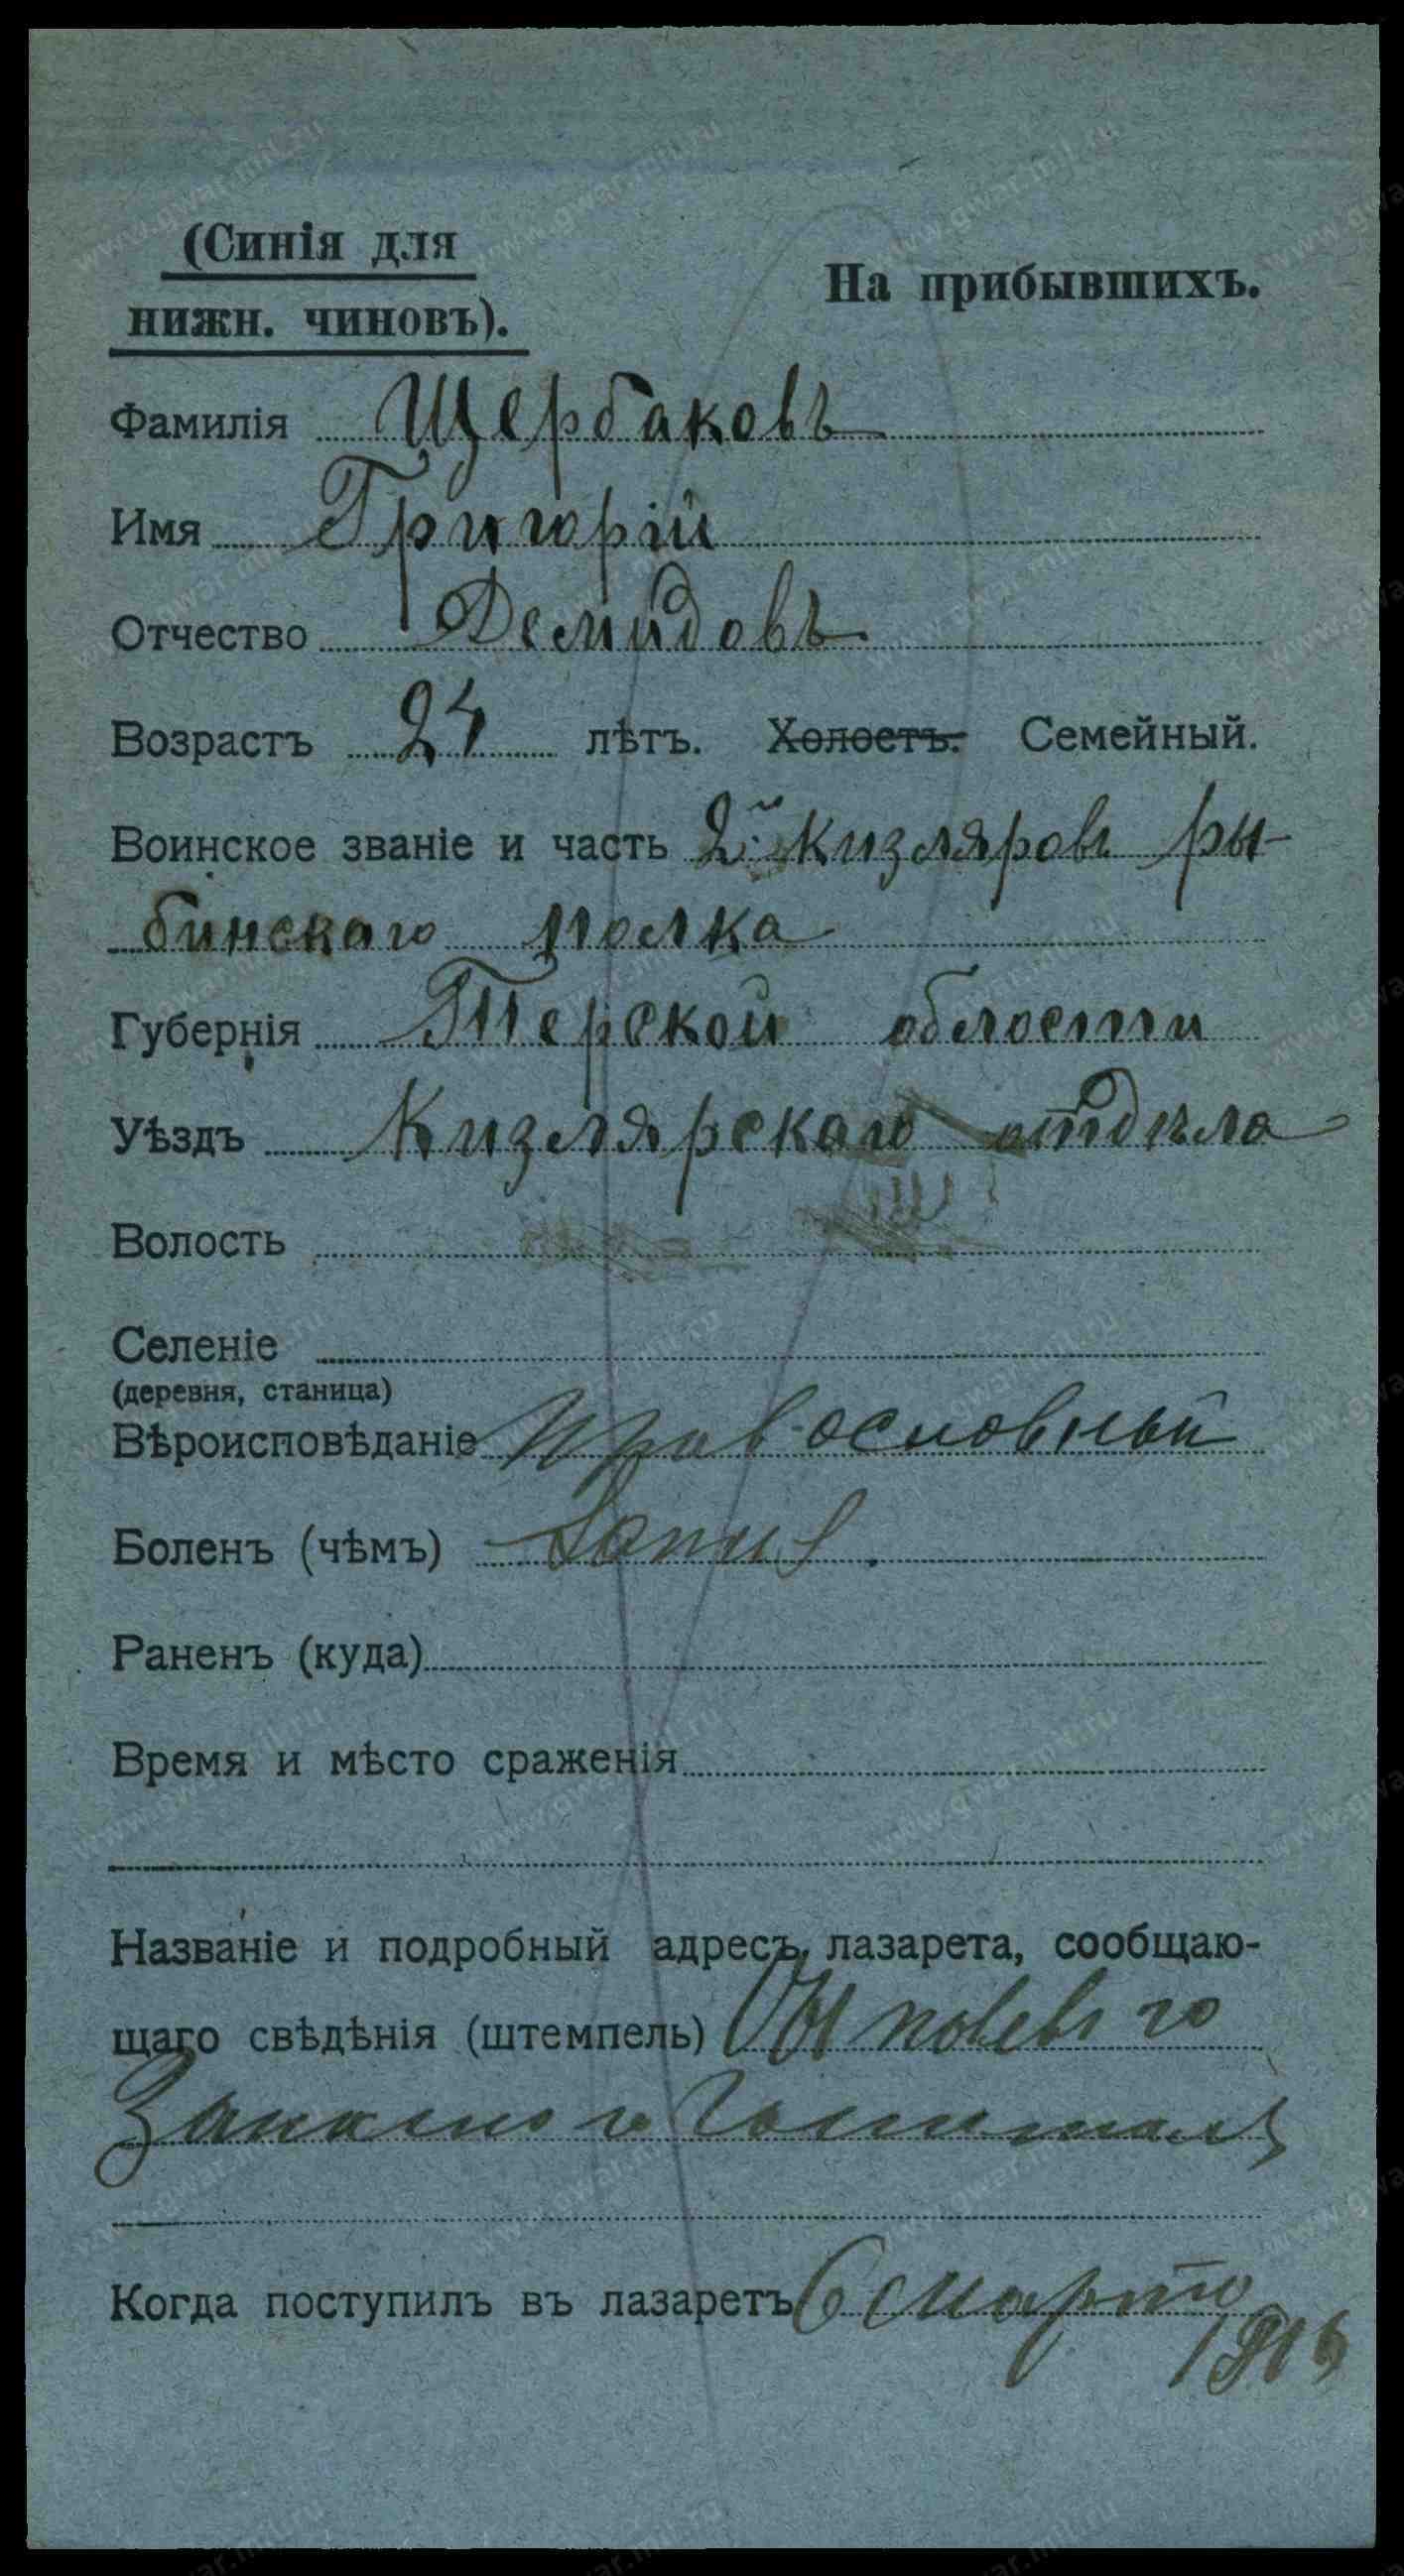 (Синія для
нижн. чиновъ).
На прибывшихъ.
Фамилія Щербаковъ
Имя Григорій
Отчество Демидовъ
Возрастъ 24 лѣтъ. Холостъ. Семейный.
Воинское званіе и часть 2й Кизляров ры-
бинскаго полка
Губернія Терской области
Уѣздъ Кизлярскаго отдѣла
Волость
Селеніе
(деревня, станица)
Вѣроисповѣданіе православный
Боленъ (чѣмъ)
Раненъ (куда)
Время и мѣсто сраженія
Названіе и подробный адресъ лазарета, сообщаю-
щаго свѣдѣнія (штемпель) полевого
Запасного Госпиталя
Когда поступилъ въ лазаретъ 6 марта
1916